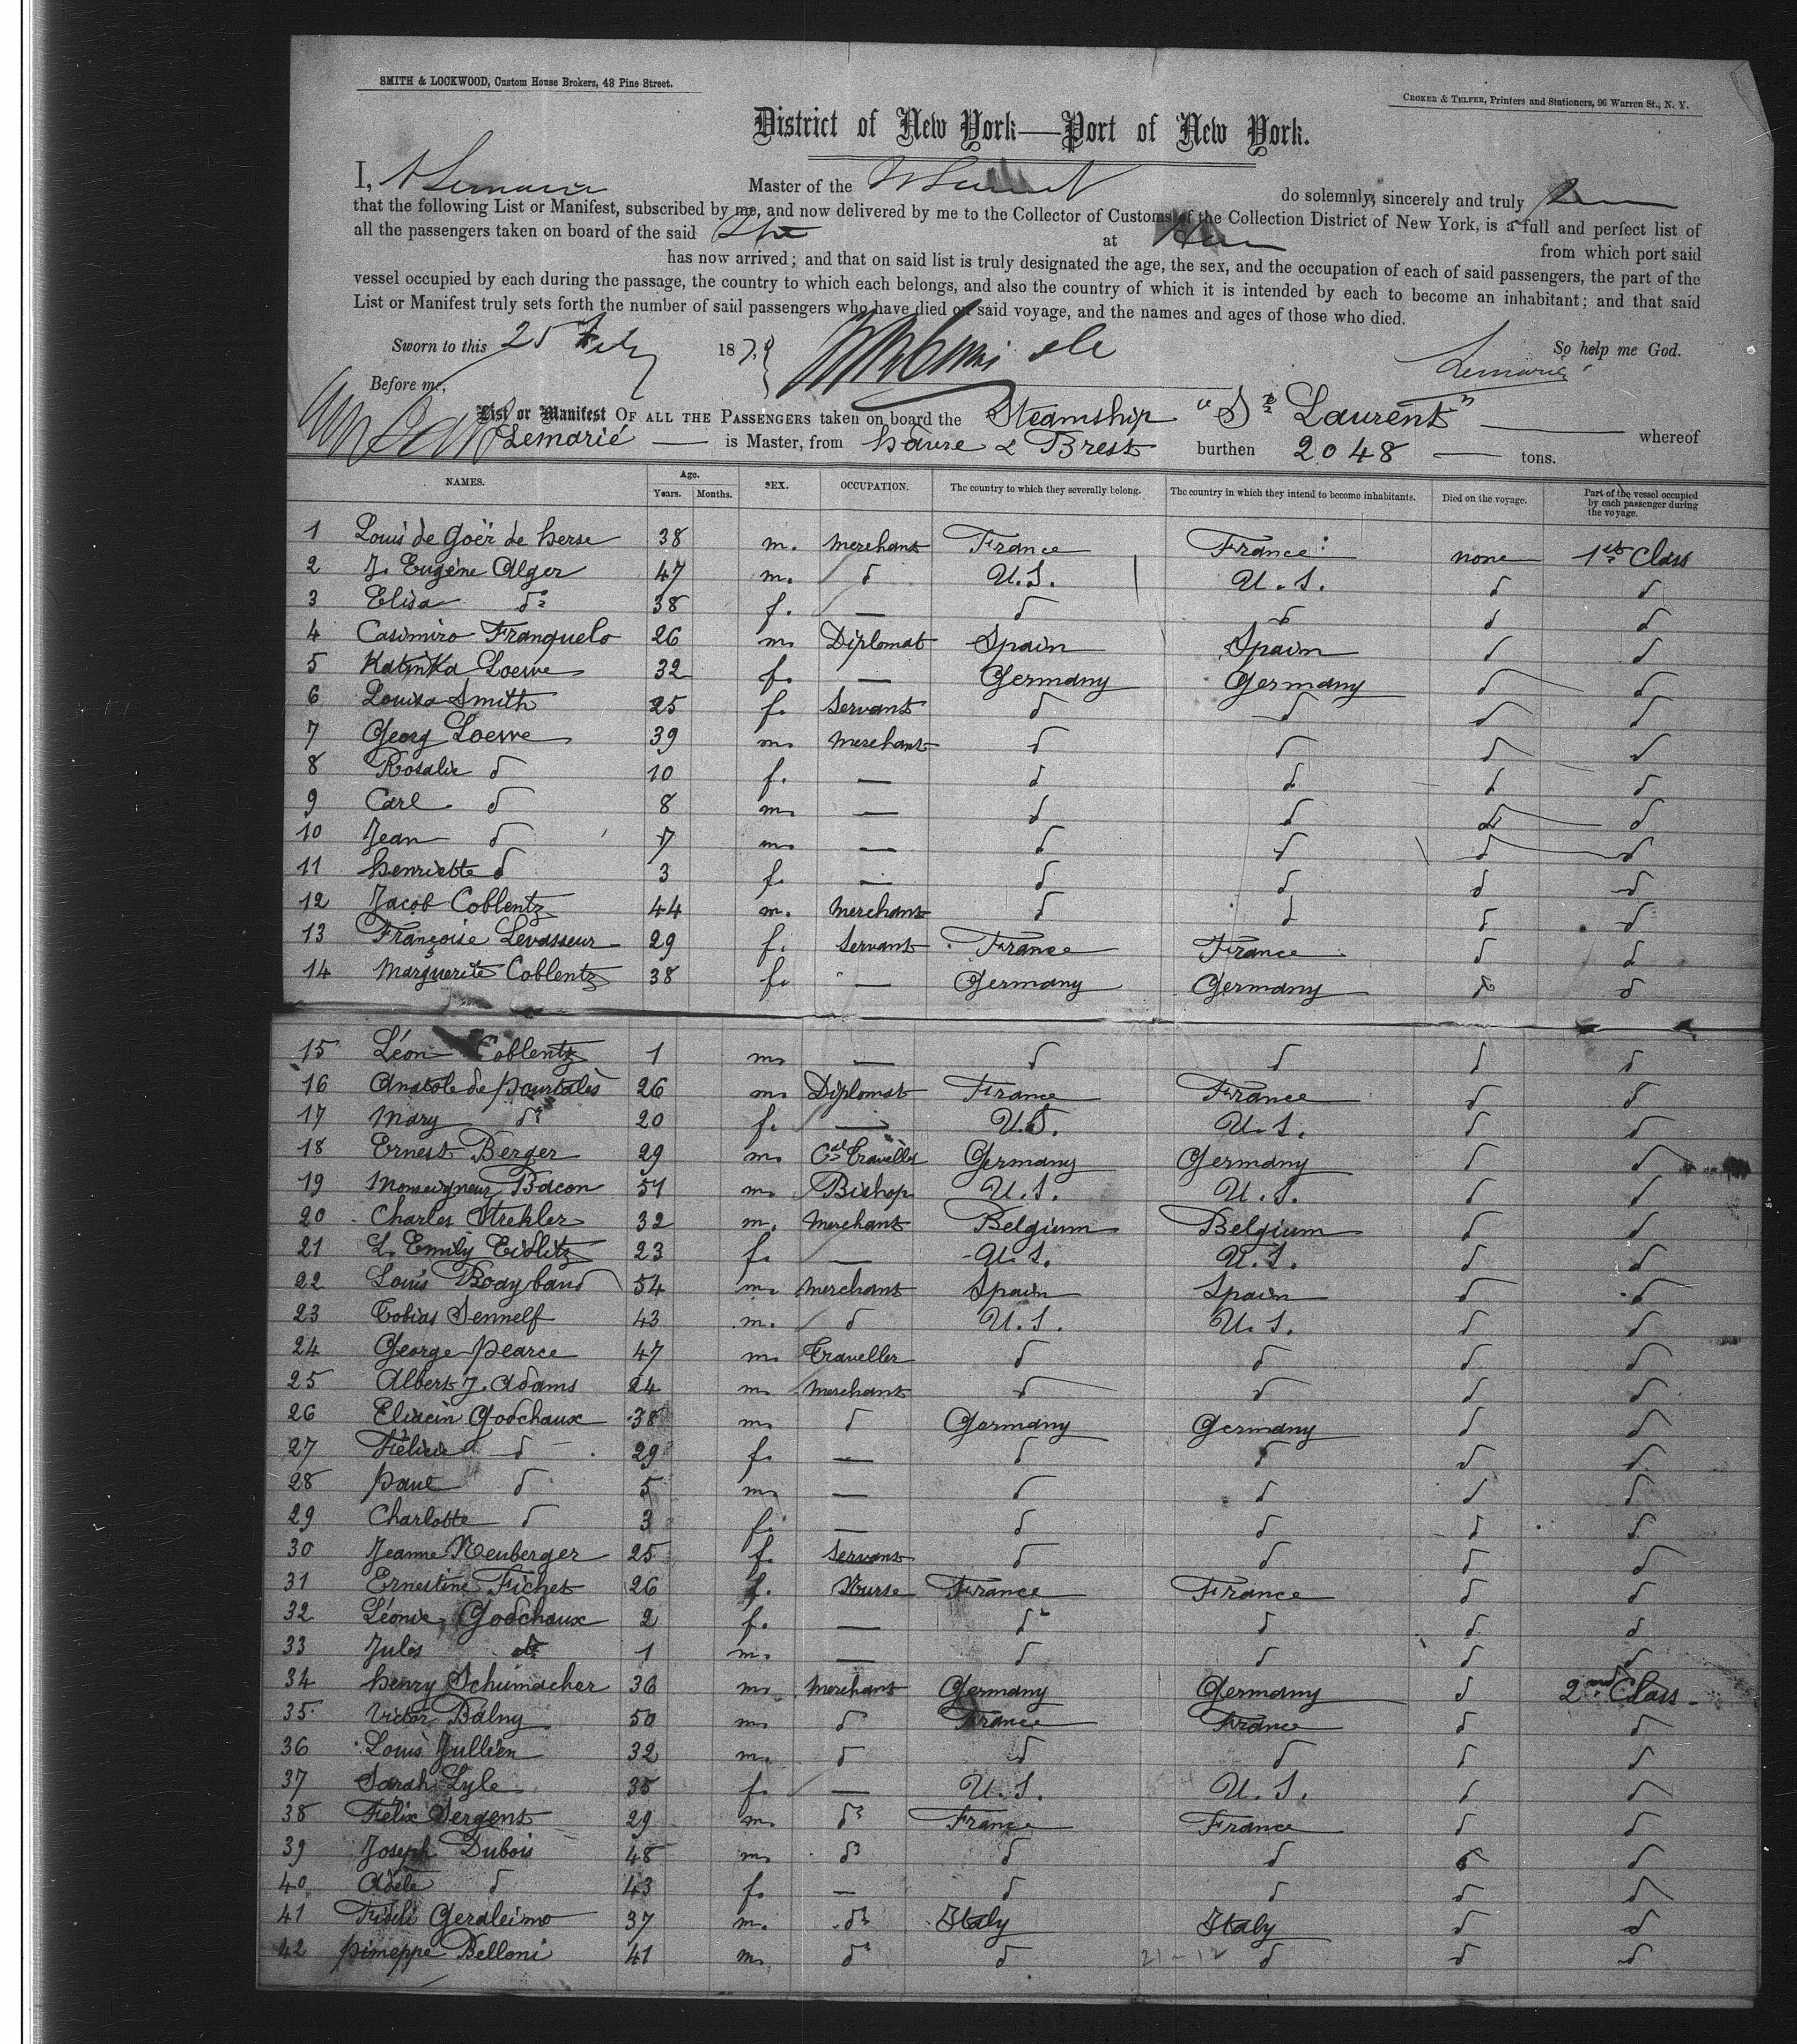 SMITH & LOCKWOOD, Custom House Brokers, 43 Pine Street.
CROKER & TELFER, Printers and Stationers, 96 Warren St., N. Y.
District of New York—Port of New York.
I, A Lemarie Master of the St Laurent do solemnly, sincerely and truly
that the following List or Manifest, subscribed by me, and now delivered by me to the Collector of Customs of the Collection District of New York, is a full and perfect list of
all the passengers taken on board of the said at from which port said
has now arrived; and that on said list is truly designated the age, the sex, and the occupation of each of said passengers, the part of the
vessel occupied by each during the passage, the country to which each belongs, and also the country of which it is intended by each to become an inhabitant; and that said
List or Manifest truly sets forth the number of said passengers who have died on said voyage, and the names and ages of those who died.
Sworn to this 25 187 So help me God.
Before me, Lemarié
List or Manifest OF ALL THE PASSENGERS taken on board the Steamship "St Laurent" whereof
Lemarié is Master, from Havre & Brest burthen 2048 tons.
NAMES. Age. Years. Months. SEX. OCCUPATION. The country to which they severally belong. The country in which they intend to become inhabitants. Died on the voyage. Part of the vessel occupied by each passenger during the voyage.
1 Louis de Goër de herse 38 m. merchant France France none 1st Class
2 J. Eugène Alger 47 m. d U.S. U.S. d d
3 Elisa do 38 f. — d d d d
4 Casimiro Franquelo 26 m. Diplomat Spain Spain d d
5 Katinka Loewe 32 f. — Germany Germany d d
6 Louisa Smith 25 f. Servant d d d d
7 Georg Loewe 39 m. merchant d d d d
8 Rosalie d 10 f. — d d d d
9 Carl d 8 m. — d d d d
10 Jean d 7 m. — d d d d
11 henriette d 3 f. — d d d d
12 Jacob Coblentz 44 m. merchant d d d d
13 Françoise Levasseur 29 f. Servant France France d d
14 Marguerite Coblentz 38 f. — Germany Germany do d
15 Léon Coblentz 1 m. — d d d d
16 Anatole de Pourtalès 26 m. Diplomat France France d d
17 Mary do 20 f. — U.S. U.S. d d
18 Ernest Berger 29 m. Cal Traveller Germany Germany d d
19 Monseigneur Bacon 51 m. Bishop U.S. U.S. d d
20 Charles Strehler 32 m. merchant Belgium Belgium d d
21 L. Emily Eidlitz 23 f. — U.S. U.S. d d
22 Louis Boayband 54 m. merchant Spain Spain d d
23 Tobias Sennelf 43 m. d U.S. U.S. d d
24 George Pearce 47 m. Traveller d d d d
25 Albert J. Adams 24 m. merchant d d d d
26 Eliacin Godchaux 38 m. d Germany Germany d d
27 Félicie d 29 f. — d d d d
28 Paul d 5 m. — d d d d
29 Charlotte d 3 f. — d d d d
30 Jeanne Neuberger 25 f. Servant d d d d
31 Ernestine Fichet 26 f. Nurse France France d d
32 Léonie Godchaux 2 f. — do d d d
33 Jules do 1 m. — d d d d
34 henry Schumacher 36 m. merchant Germany Germany d 2nd Class
35 Victor Balny 50 m. d France France d d
36 Louis Jullien 32 m. d d d d d
37 Sarah Lyle 35 f. — U.S. U.S. d d
38 Félix Sergent 29 m. do France France d d
39 Joseph Dubois 48 m. do d d d d
40 Adèle d 43 f. — d d d d
41 Fideli Geraleimo 37 m. do Italy Italy d d
42 Pimeppe Belloni 41 m. do d 21-12 d d d